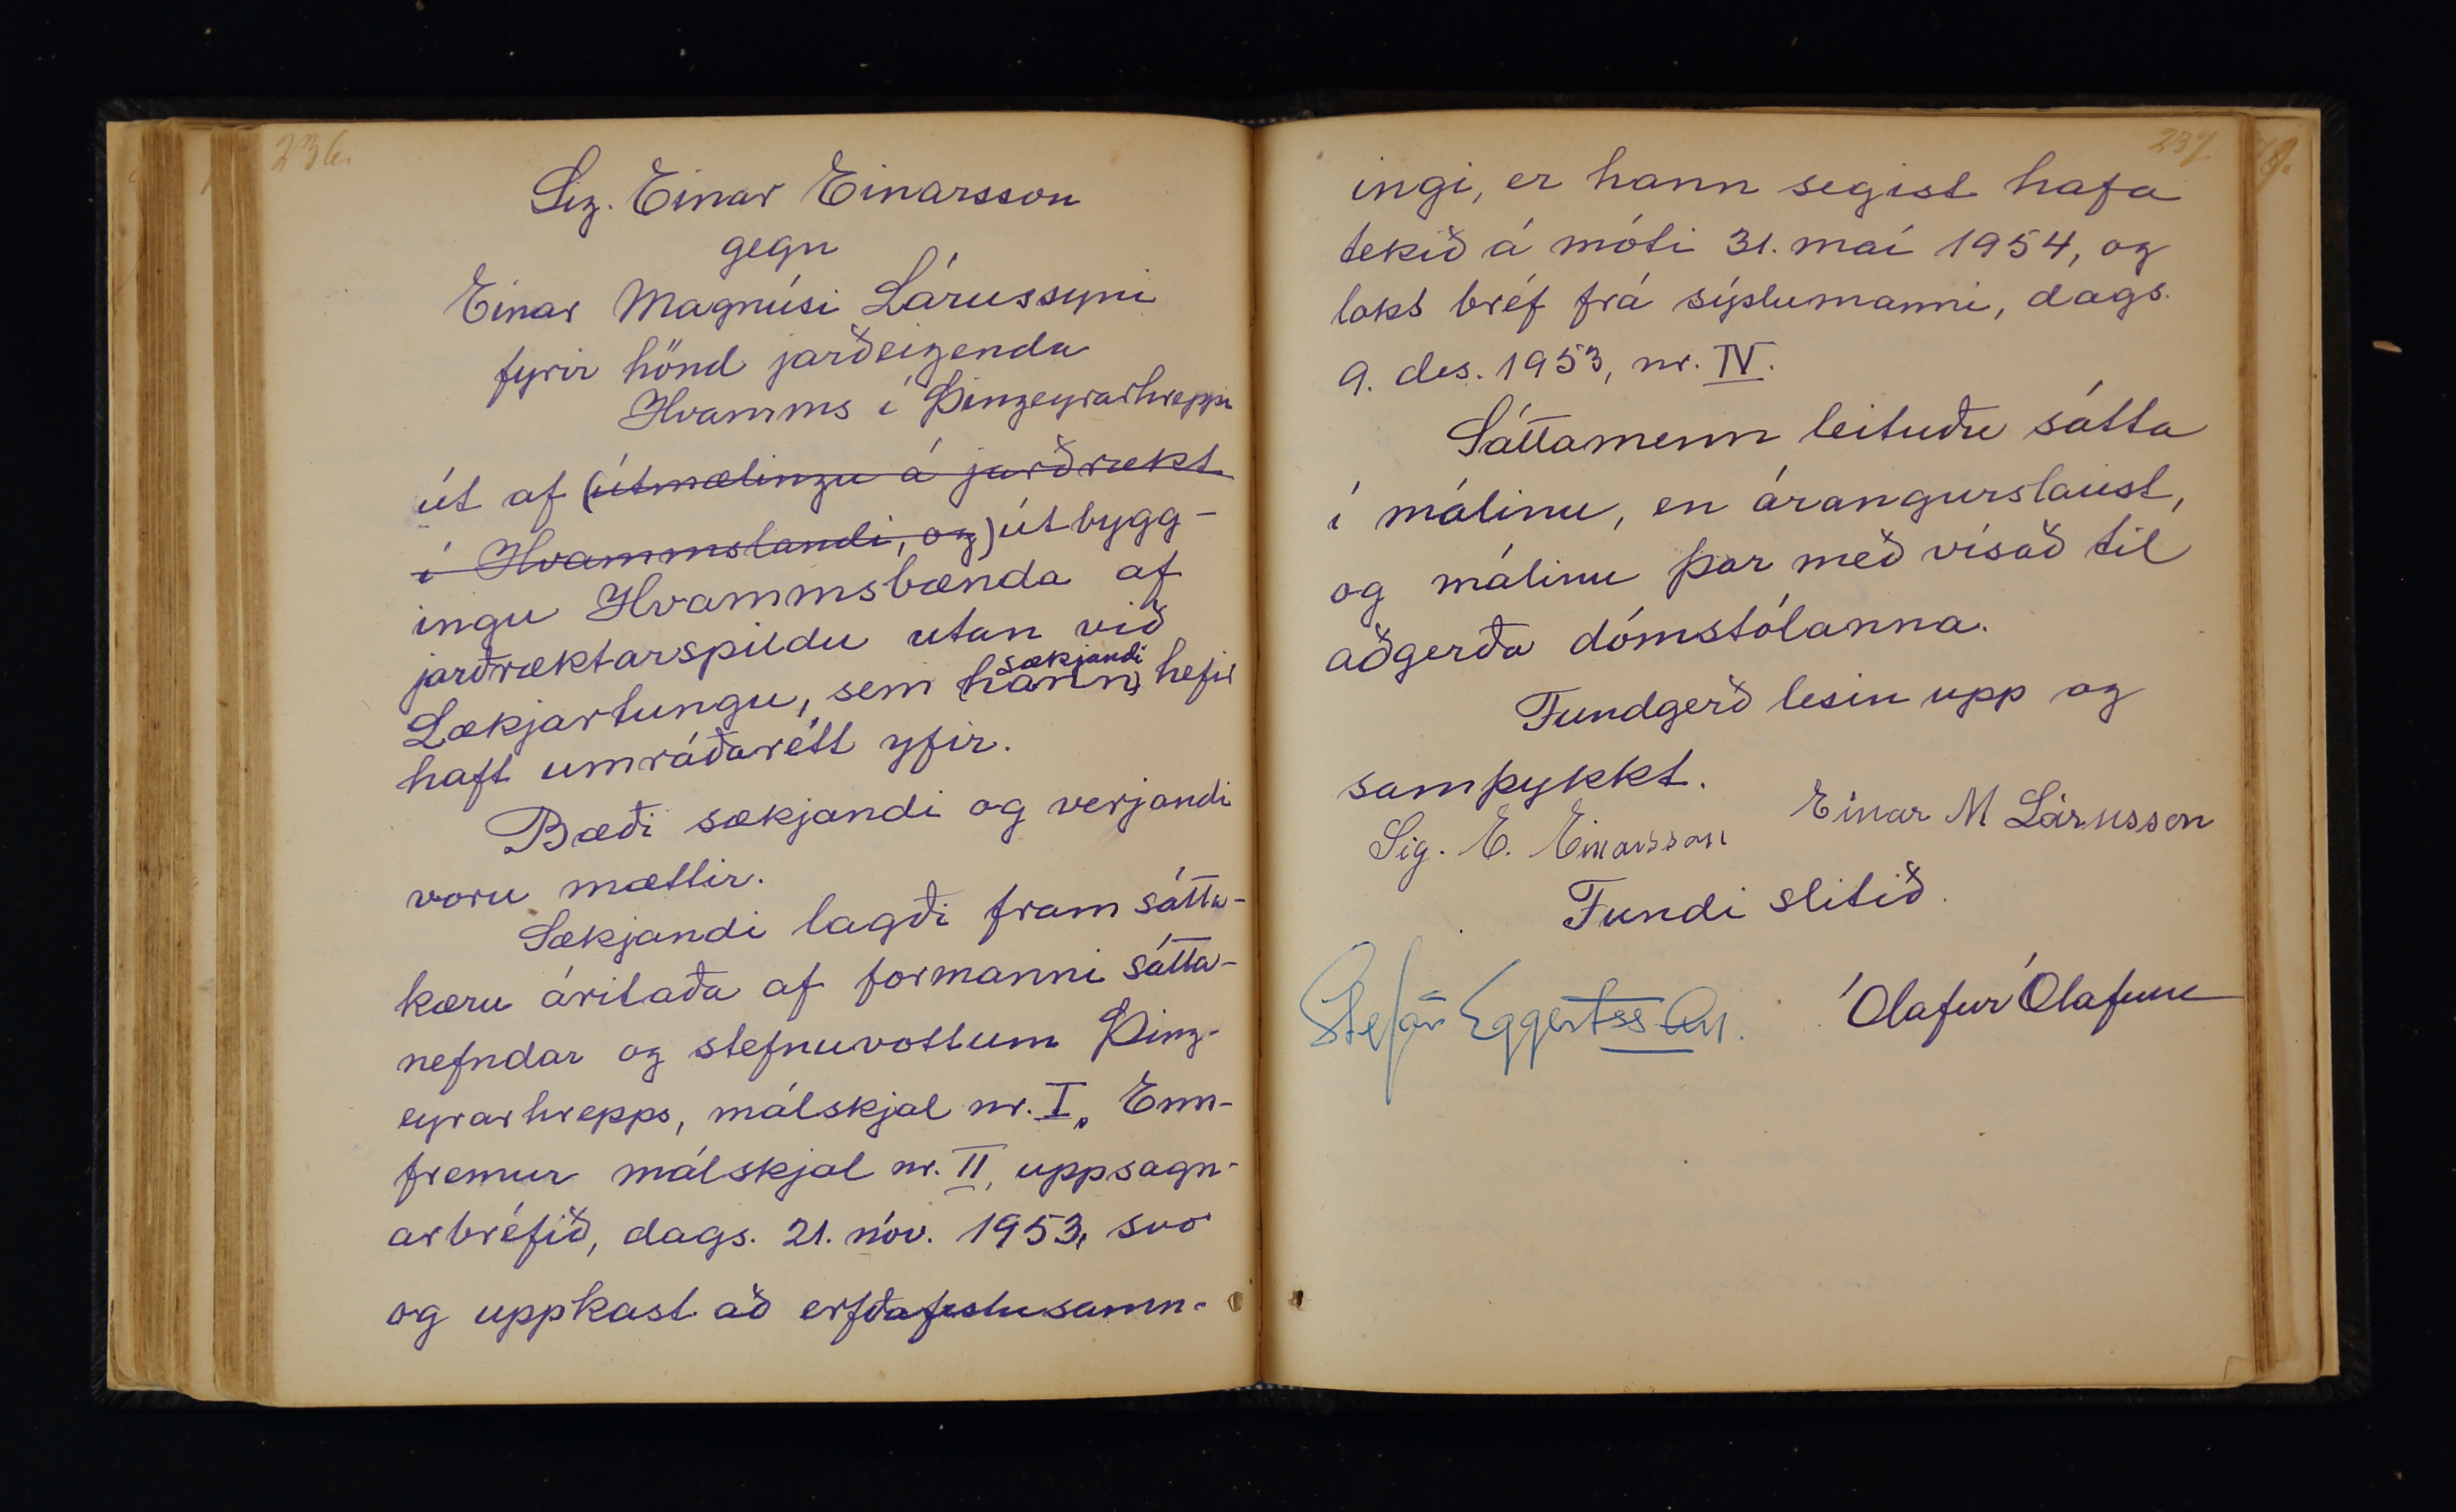 236.
Sig. Einar Einarsson
gegn
Einar Magnúsi Lárussyni
fyrir hönd jarðeigenda
Hvamms í Þingeyrarhreppi
út af (útmælingu á jarðrækt
í Hvammslandi, og) útbygg-
ingu Hvammsbænda af
jarðræktarspildu utan við
sækjandi
Lækjartungu, sem (hann) hefir
haft umráðarétt yfir.
Bæði sækjandi og verjandi
voru mættir.
Sækjandi lagði fram sátta-
kæru áritaða af formanni sátta-
nefndar og stefnuvottum Þing-
eyrarhrepps, málskjal nr. I. Enn-
fremur málskjal nr. II, uppsagn-
arbréfið, dags. 21. nóv. 1953, svo
og uppkast að erfðafestusamn-
237
ingi, er hann segist hafa
tekið á móti 31. maí 1954, og
loks bréf frá sýslumanni, dags.
9. des. 1953, nr. IV.
Sáttamenn leituðu sátta
í málinu, en árangurslaust,
og málinu þar með vísað til
aðgerða dómstólanna.
Fundgerð lesin upp og
samþykkt.
Einar M Lárusson
Sig. E. Einarsson
Fundi slitið.
Stefán Eggertsson.
Ólafur Ólafsson